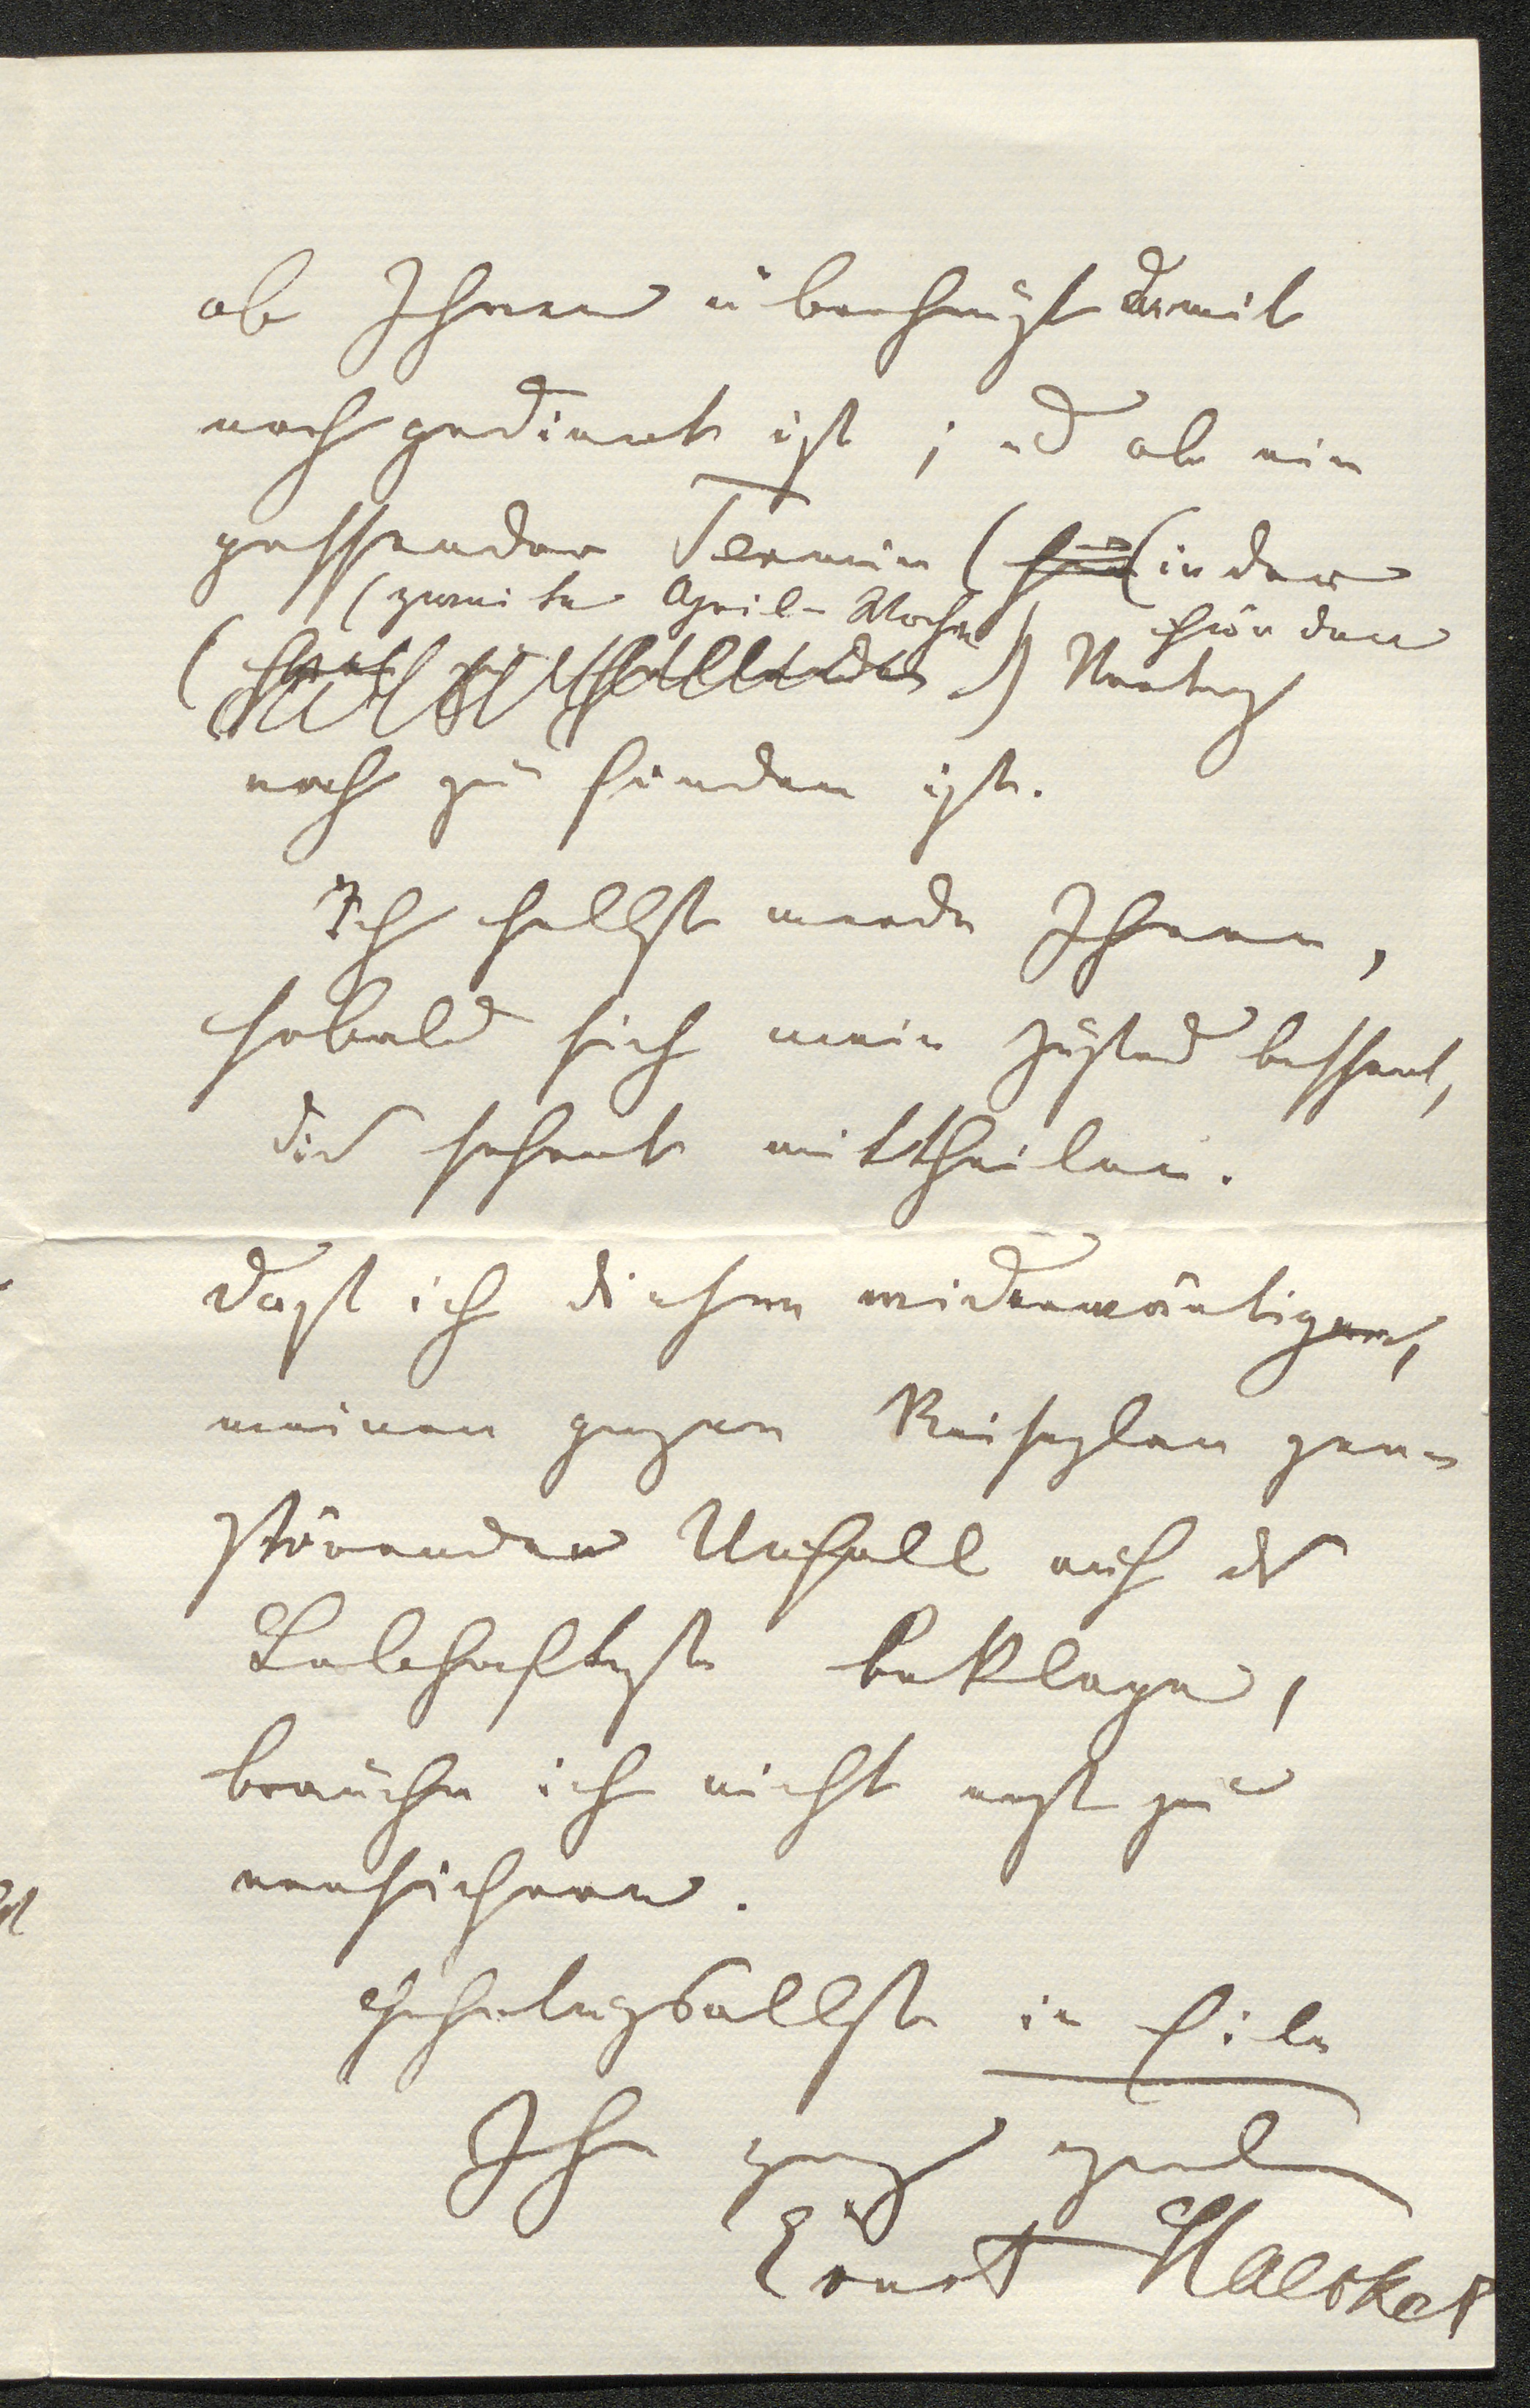 ob Ihnen überhaupt damit
noch gedient ist; und ob ein
passender Termin (für (in der
(zweiten April-Woche) für den
Vortrag
noch zu finden ist.
Ich selbst werde Ihnen,
sobald sich mein Zustand bessert,
dies sofort mittheilen.
Dass ich diesen widerwärtigen,
meinen ganzen Reiseplan zer-
störenden Unfall auf das
Lebhafteste beklage,
brauche ich nicht erst zu
versichern.
Hochachtungsvollst in Eile
Ihr ganz ergebener
Ernst Haeckel